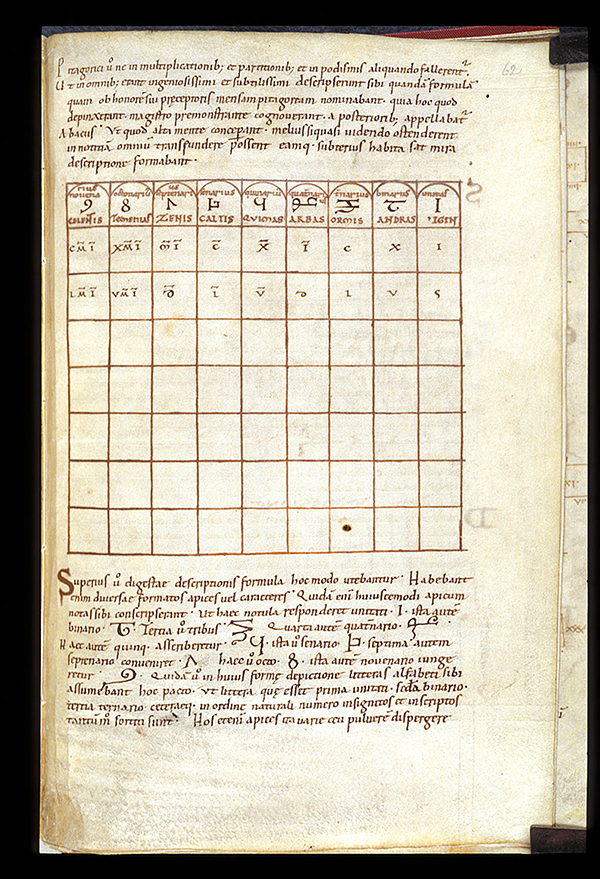 62
Pitagorici ũ ne in multiplicationib; et partitionib; et in podismis aliquando fallerent͛
Ut in omnib; erant ingeniosissimi et subtilissimi descripserunt sibi quandã formulã
quam ob honorẽ sui preceptoris mensam pitagoream nominabant · quia hoc quod
depinxerant magistro premonstrante cognoverant · a posteriorib; appellabat͛
Abacus · Ut quod alta mente conceperant · melius si quasi videndo ostenderent
in notitiã omniũ transfundere possent eamq· subterius habita sat mira
descriptione formabant ·
novenarius octonarius septenarius senarius quinarius quaternari ternarius binarius unitas
9 8 I
CELENTIS TEMENIAS ZENIS CALTIS QUIMAS ARBAS ORMIS ANDRAS IGIN
c̅m̅i̅ x̅m̅i̅ m̅i̅ c̅ x̅ i̅ c x I
l̅m̅i̅ v̅m̅i̅ l̅ v̅ l v s
Superius ũ digestae descriptionis formula hoc modo utebantur · Habebant
enim diversae formatos apices vel caracteres · Quidã eni huiuscemodi apicum
notas sibi conscripserant · Ut haec notula responderet unitati · I · ista autẽ
binario · Tertia ũ tribus Quarta autẽ quat̃nario ·
Haec autẽ quinq· ascriberetur · ista ũ senario · septima autem
septenario conveniret · haec ũ octo · 8 · ista autẽ novenario iunge
retur · 9 · Quidã ũ in huius formẹ depictione litteras alfabeti sibi
assumebant hoc pacto · Ut littera quẹ esset prima unitati · scd̃a binario ·
tertia ternario ceteraeq· in ordine naturali numero insignitos et inscriptos
tantũm sortiti sunt · Hos etenĩ apices ita varie ceu pulverẽ dispergere